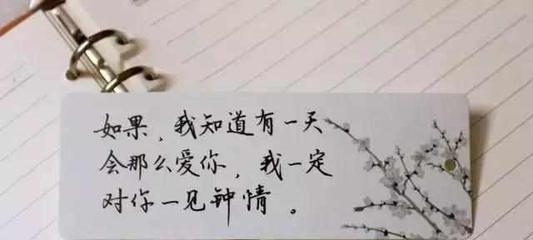 如果，我知道有一天
会那么爱你，我一定
对你一见钟情。